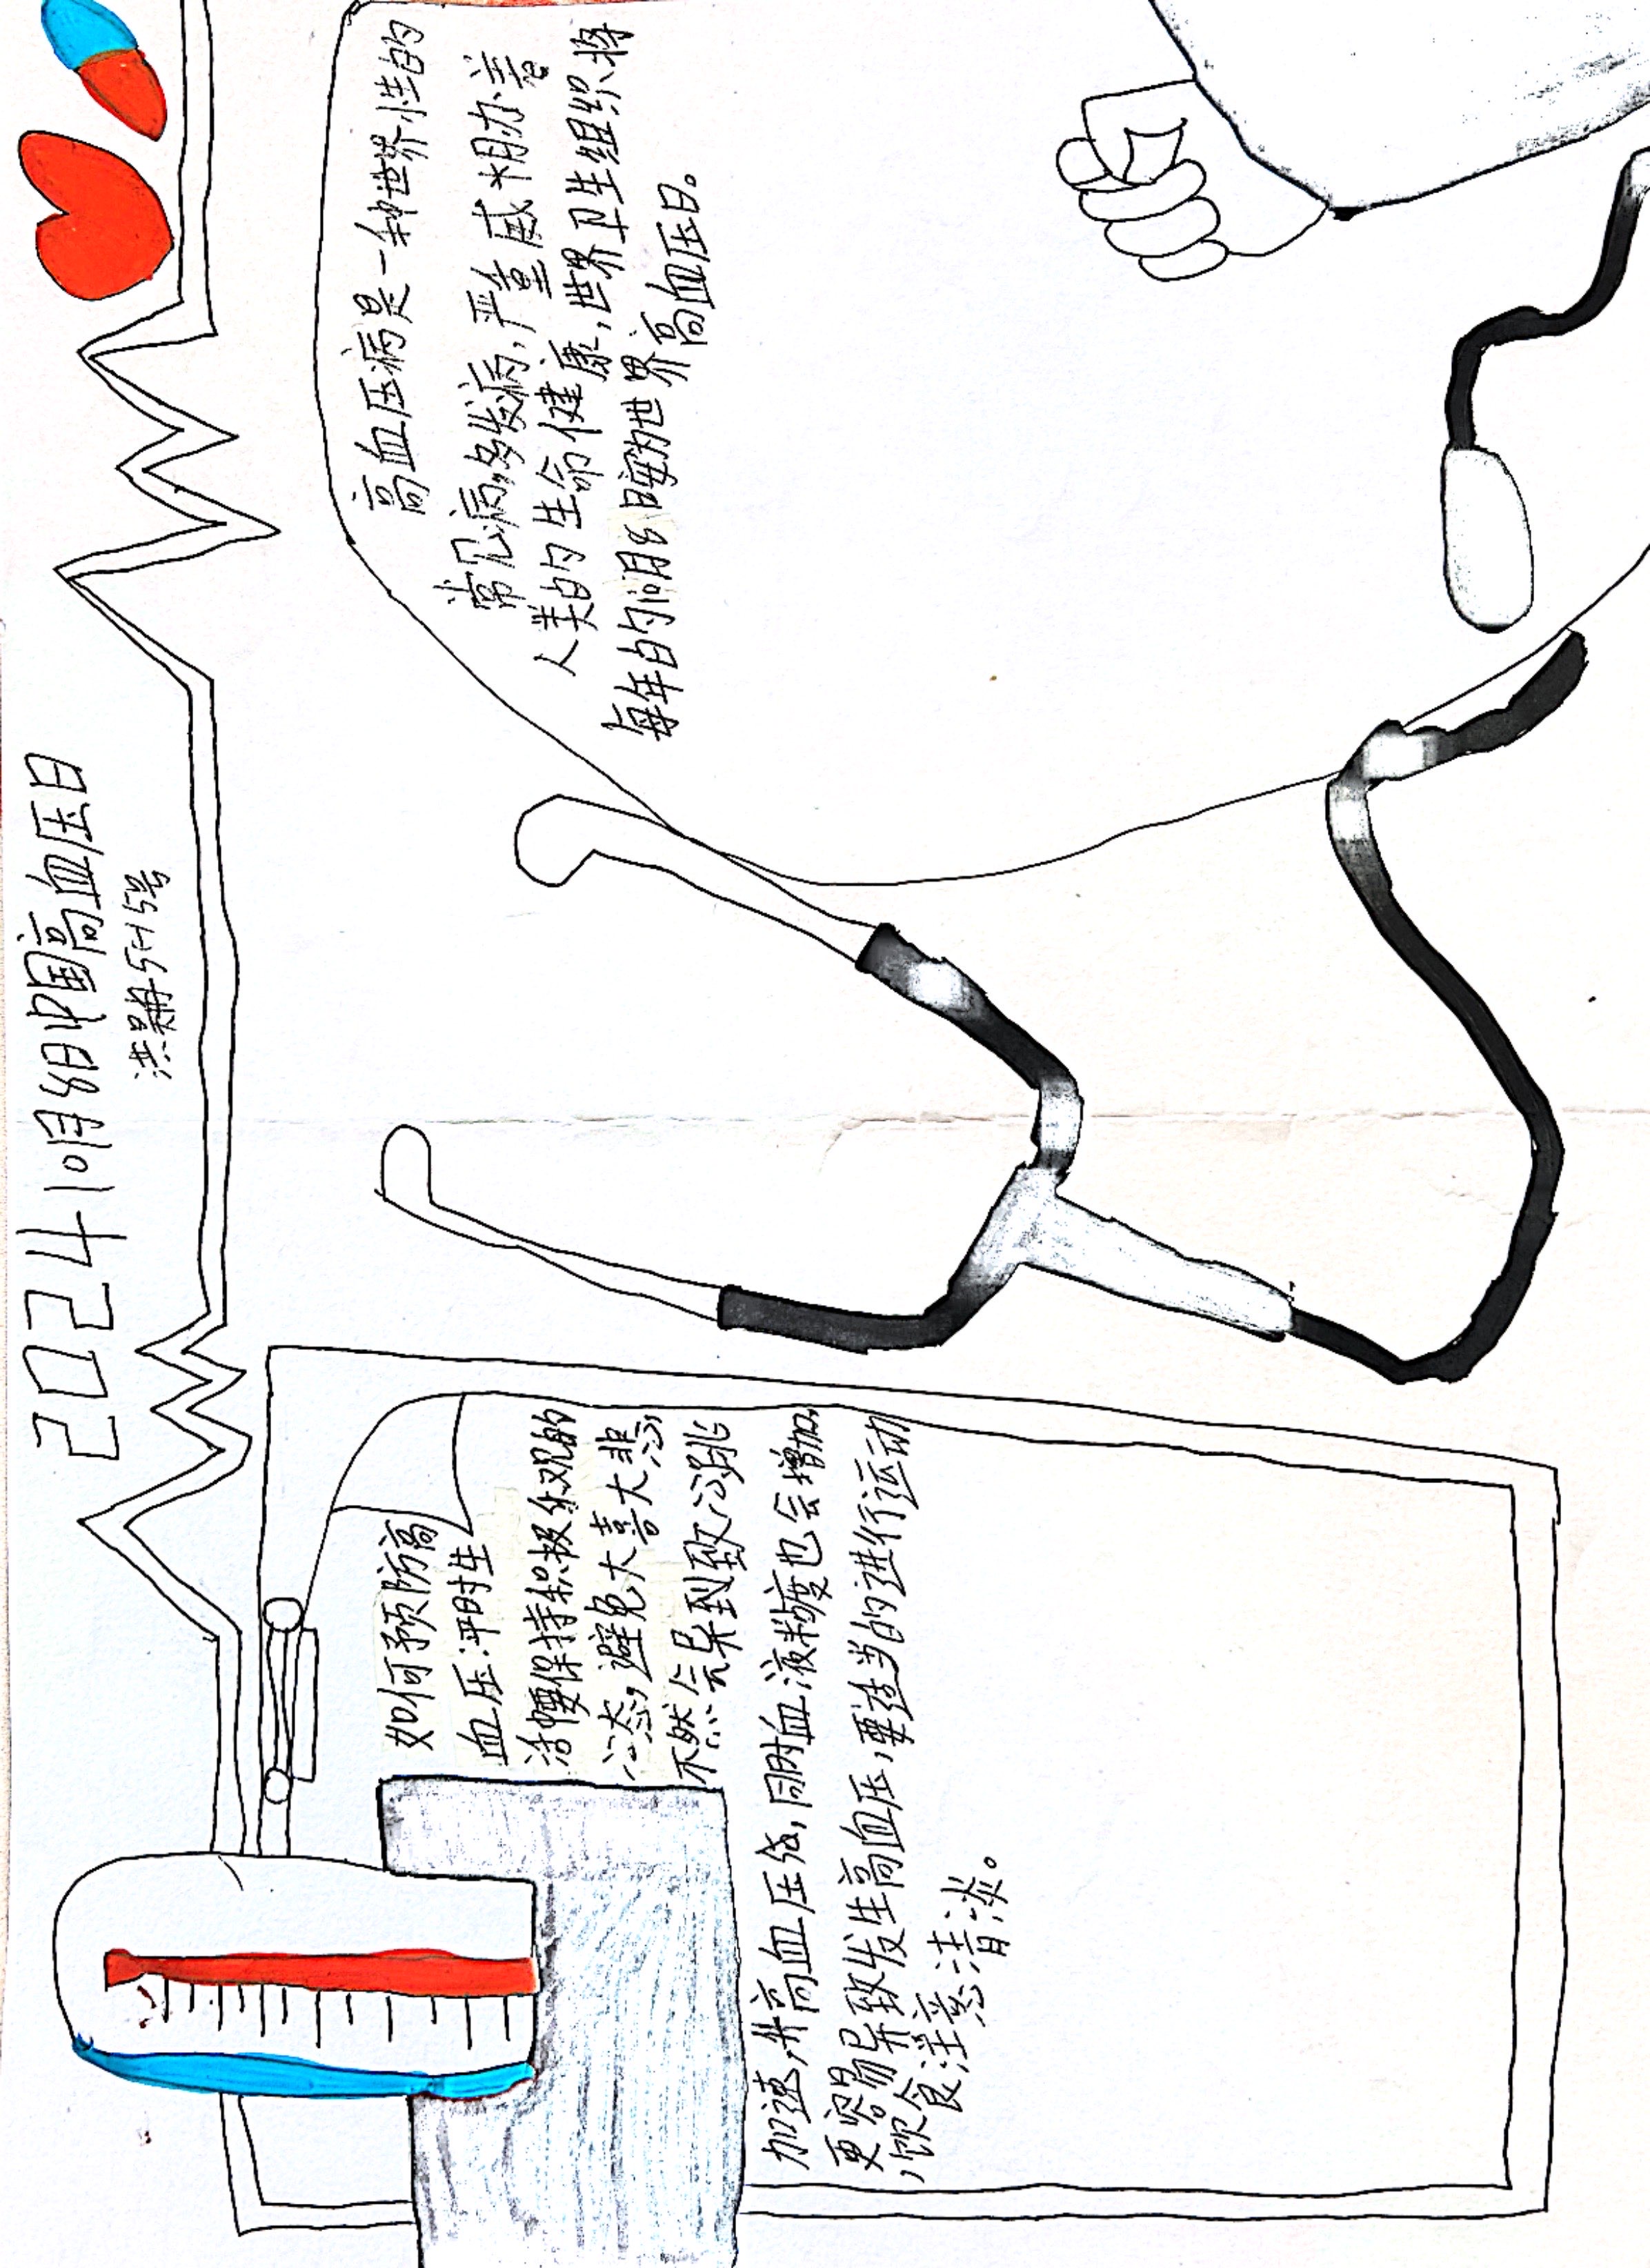 2024 10月8日中国高血压日
5-1 5号
如何预防高
血压:平时生
活中要保持积极乐观的
心态,避免大喜大悲,
不然会导到致心跳
加速,升高血压,同时血液粘度也会增加
更容易导致发生高血压,要适当的进行运动
,饮食注意清淡。
高血压病是一种世界性的
常见病,多发病,严重威胁着
人类的生命健康,世界卫生组织将
每年的10月8日定为世界高血压日。